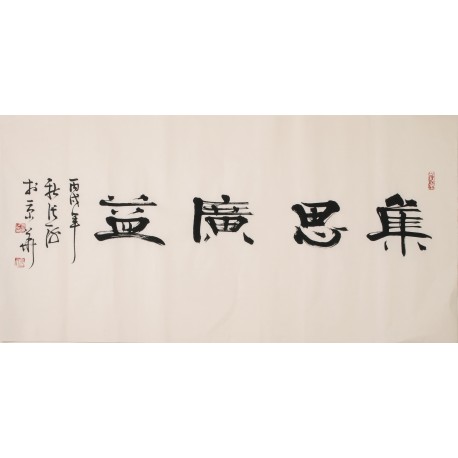 集思廣益
丙戌年
秋
於京華